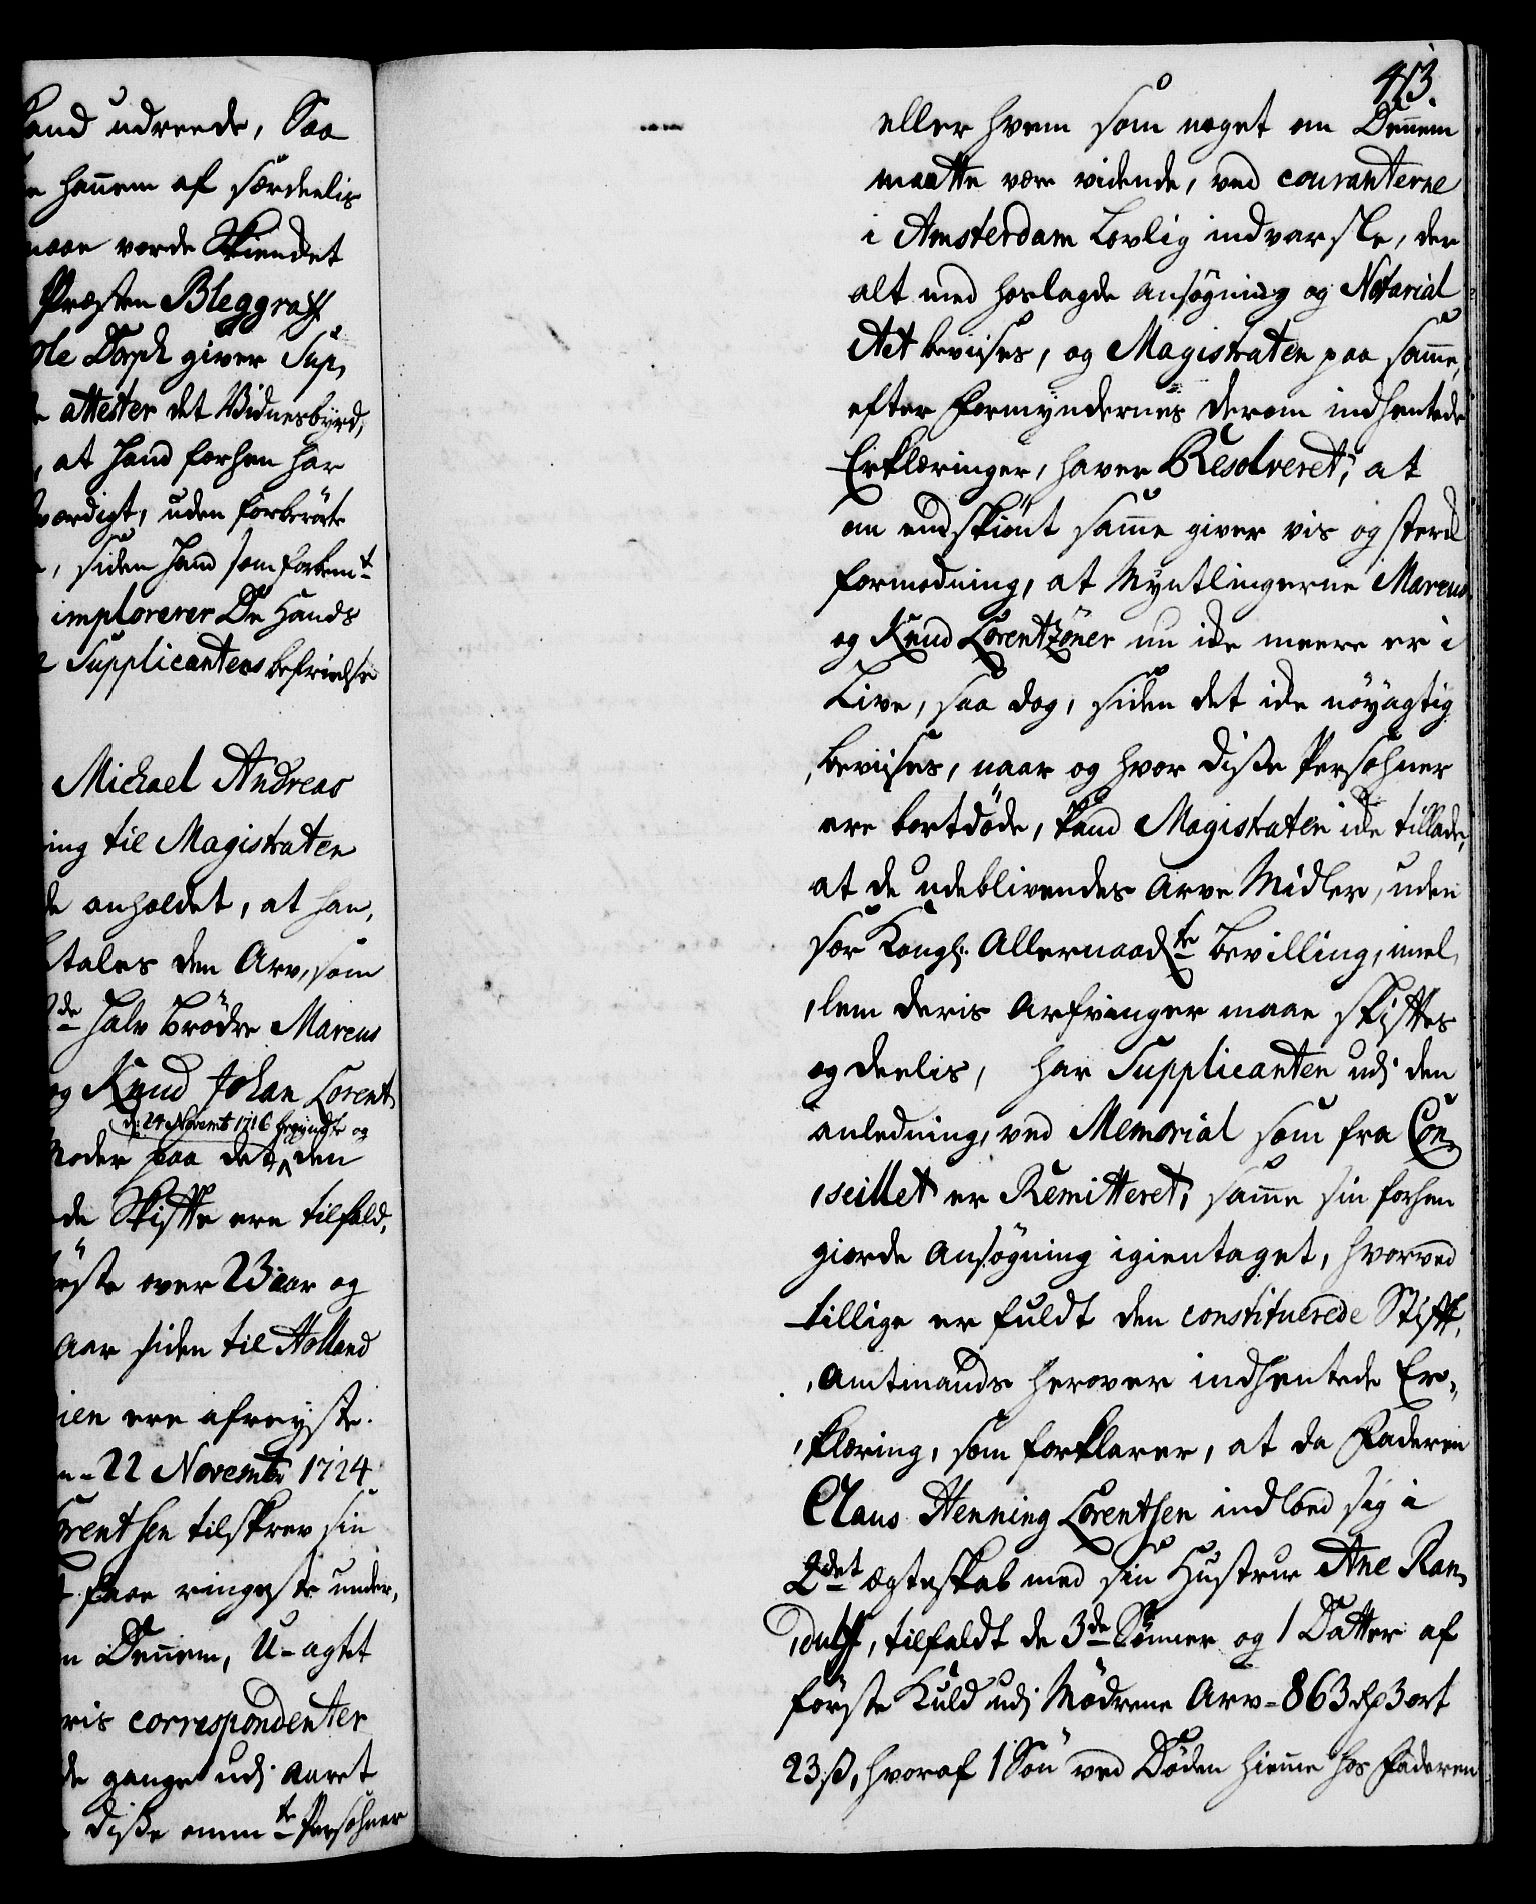 Kand udreede, Saa
hannem af særdeelis
maae vorde Skiendet
Præsten Bleggraff
Ole Dorph giver Sup,
attester det Vidnesbyrd,
, at hand forhen har
værdigt, uden forberørte
, siden hand som forbemt
implorerer De Hands
Supplicantens befrielse
Michael Andreas
ing til Magistraten
de anholdet, at han,
tales den Arv, som
de halv Brødre Marcus
og Knud Johan Lorent,
d: 24 Novembr 1716 begyndte og
Moder paa det den
de Skifte ere tilfald,
ørste over 23 aar og
Aar siden til Holland
ien ere afreyste.
22 Novembr 1724
orentsen tilskrev sin
faae ringeste under,
Dennem, U-agtet
ris correspondenter
de gange udj Aaret
disse ommte Persohner
413.
eller hvem som noget om Dennem
maatte være vidende, ved couranterne
i Amsterdam Lovlig indvarsle, der
alt med hoslagde Ansøgning og Notarial
Act beviises, og Magistraten paa samme,
efter Formyndernes derom indhentede
Erklæringer, haver Resolveret, at
om endskiønt samme giver vis og sterck
formodning, at Myntlingerne Marcus
og Knud Lorentzøner nu icke meere er i
Live, saa dog, siden det icke nøyagtig
beviises, naar og hvor disse Persohner
ere bortdøde, kand Magistraten icke tillade,
at de udeblivendes Arve Midler, uden
sær Kongl: Allernaadte Bevilling, imel,
lem deris Arfvinger maae skiftes
og deelis, har Supplicanten udj den
anledning, ved Memorial som fra Con,
seillet er Remitteret, samme sin forhen
giorde Ansøgning igientaget, hvorved
tillige er fuldt den constituerede Stift,
Amtmands herover indhentede Er,
klæring, som forklarer, at da Faderen
Claus Henning Lorentsen indlod sig i
2det ægteskab med sin Hustrue Ane Ran,
dulff, tilfaldt de 3de Sønner og 1 Datter af
første Kuld udj Mødrene Arv = 863 rdr 3 ort
23 ß, hvoraf 1 Søn ved Døden hiemme hos Faderen